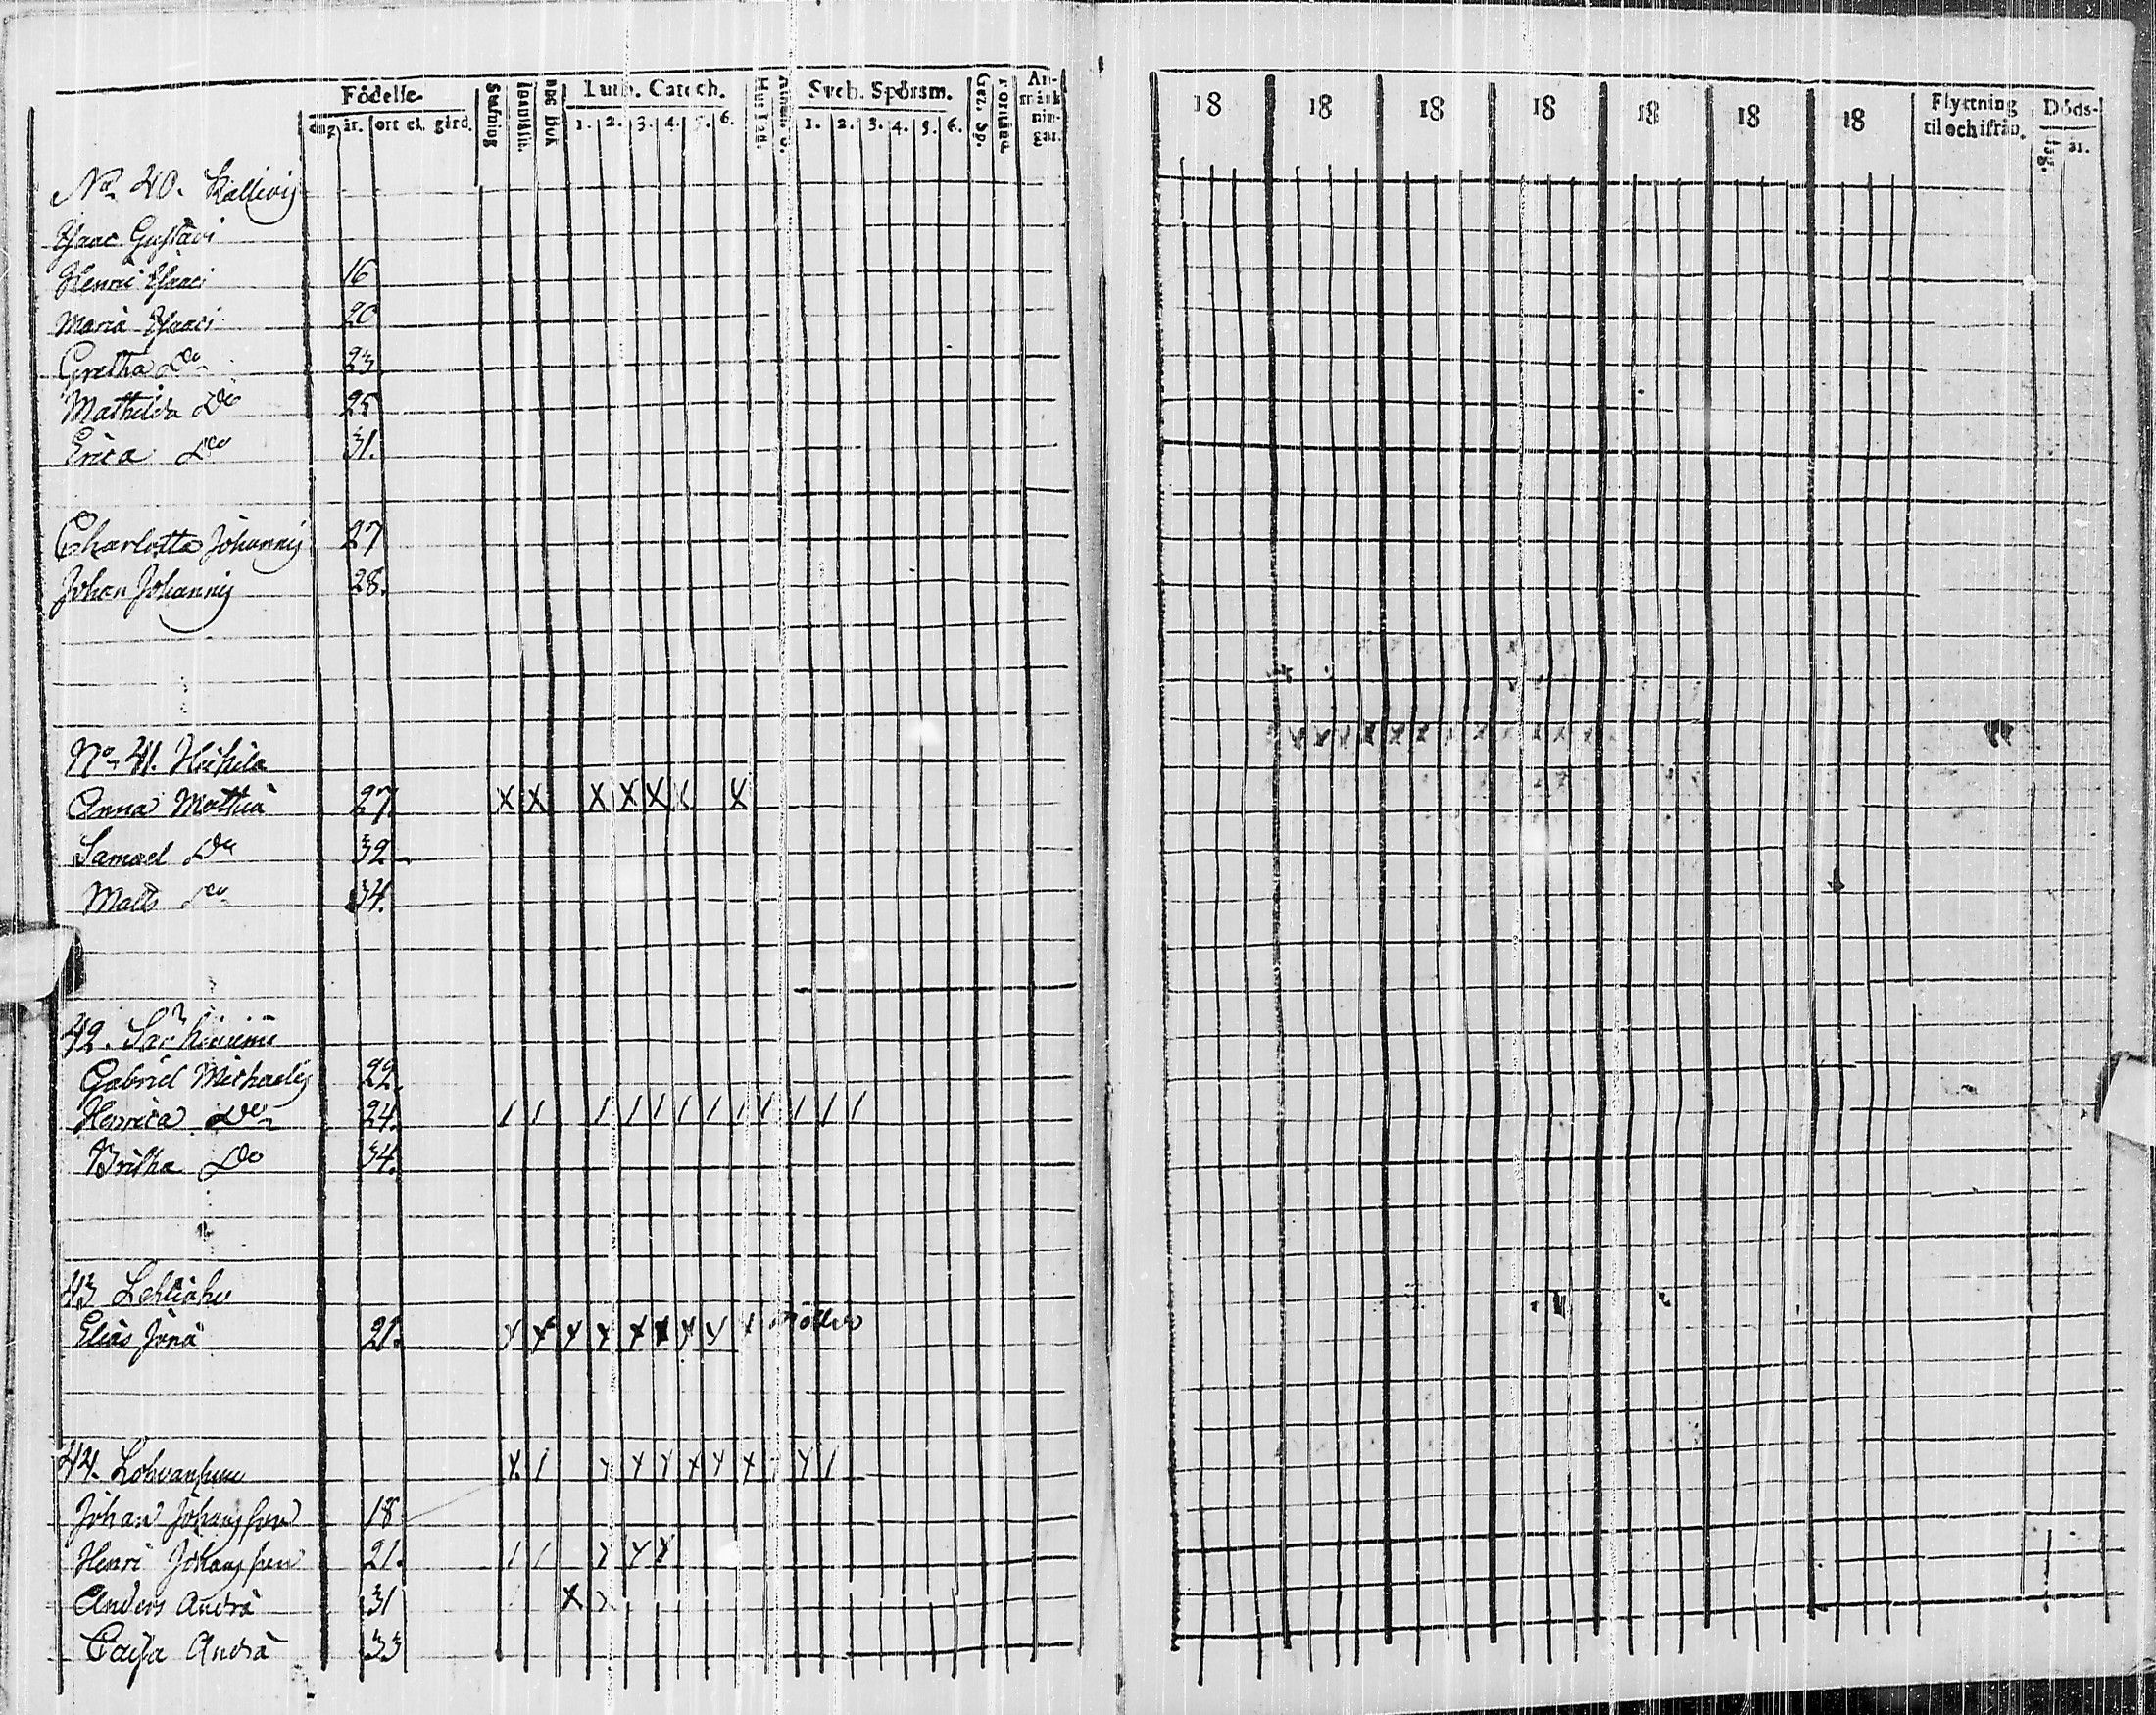 Födelse
dag år. ort el. gård.
Stafning
Innanläsn.
ABC Bok
Luth. Catech.
1. 2. 3. 4. 5. 6.
Hus Taf.
Sveb. Spörsm.
1. 2. 3. 4. 5. 6.
Gez. Sp.
Förstånd.
An-
märk
nin-
gar.
18 18 18 18 18 18 18
Flyttning
til och ifrån.
Döds-
dag. år.
No 40. Kallivij
Isaac Gustavi
Henric Isaaci 16
Maria Isaaci 20
Gretha Do 23
Mathilda Do 25
Erica Do 31.
Charlotta Johannis 27
Johan Johannis 28.
No 41. Heikila
Anna Matthiæ 27. X X X X X X
Samuel Do 32
Matts Do 34.
42. Särkiniemi
Gabriel Michaelis 22.
Henrica Do 24. / / / / / / / / / / / /
Britha Do 34.
43 Lehtiaho
Elias Jonæ 21.
44.
Johan Johansson 18
Henric Johansson 21.
Anders Andræ 31 X
Cajsa Andræ 33